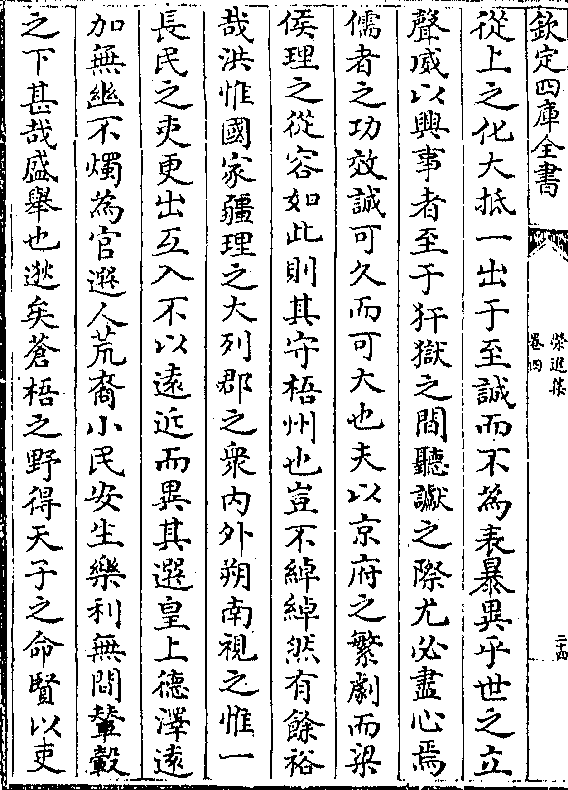 欽定四庫全書
榮進集
卷四
二十四
從上之化大抵一出于至誠而不為表暴異乎世之立
聲威以興事者至于犴獄之間聽讞之際尤必盡心焉
儒者之功效誠可久而可大也夫以京府之繁劇而梁
侯理之從容如此則其守梧州也豈不綽綽然有餘裕
哉洪惟國家疆理之大列郡之衆内外朔南視之惟一
長民之吏更出互入不以遠近而異其選皇上德澤遠
加無幽不燭為官選人荒裔小民安生樂利無問輦轂
之下甚哉盛舉也逖矣蒼梧之野得天子之命賢以吏